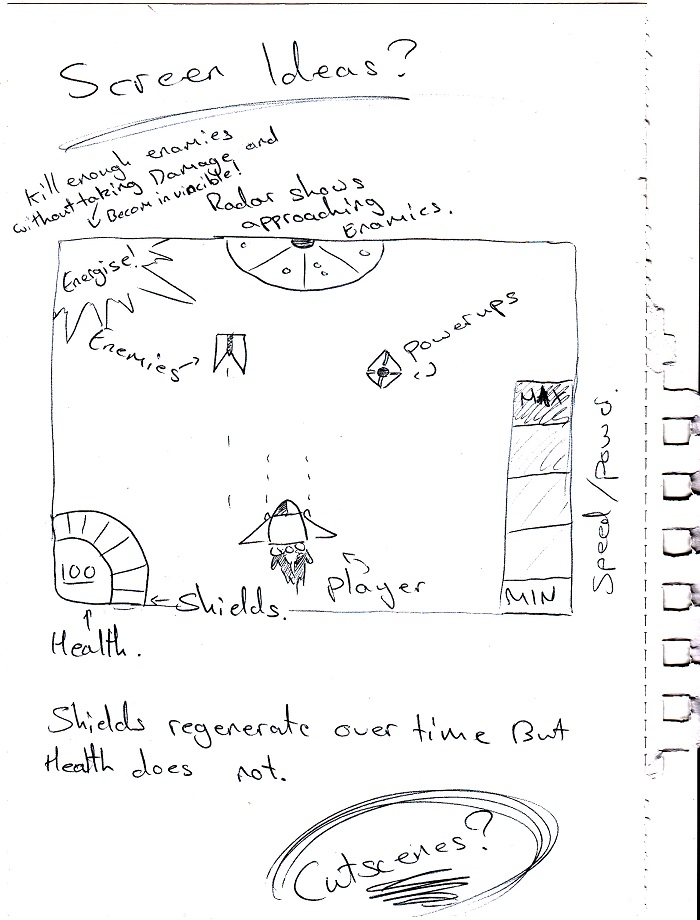 Screen Ideas?
Kill enough enamies
without taking Damage and
Becom invincible!
Radar shows
approaching
Enamies.
Energise!
Enemies
Powerups
MAX
Speed/Power.
100
Shields.
Player
MIN
Health.
Shields regenerate over time But
Health does not.
Cutscenes?